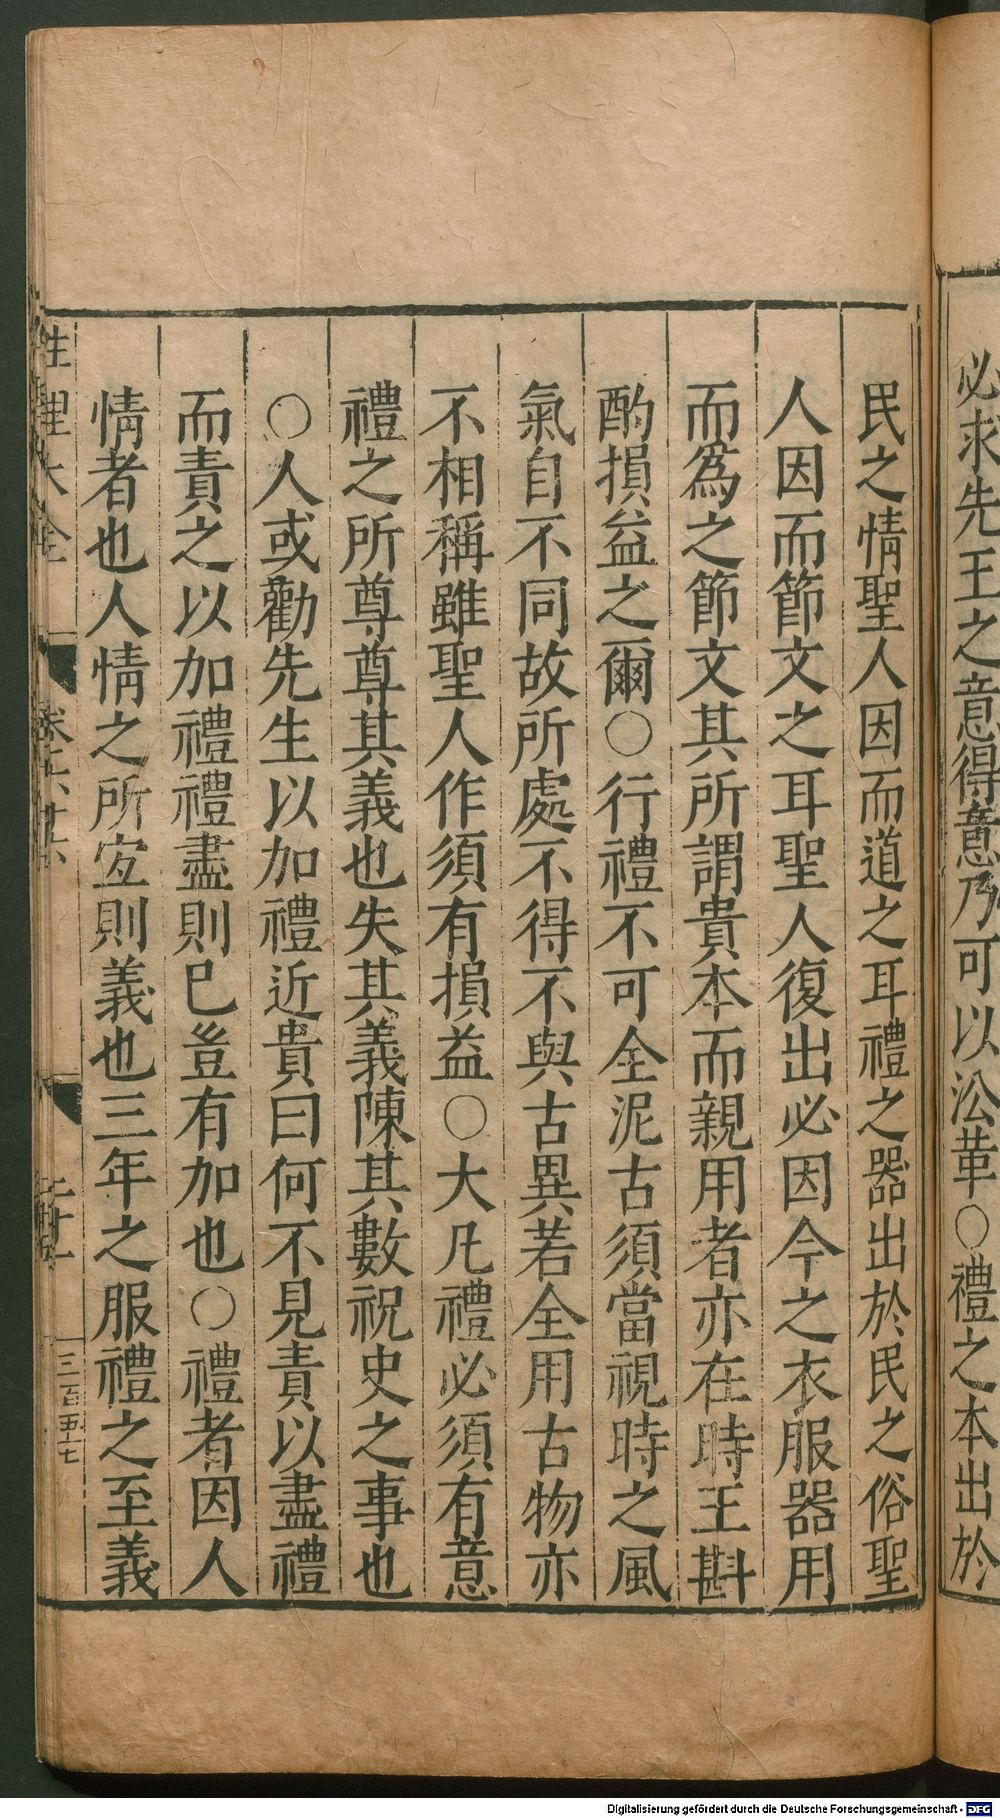 必求先王之意得意乃可以沿革○禮之本出於
民之情聖人因而道之耳禮之器出於民之俗聖
人因而節文之耳聖人復出必因今之衣服器用
而為之節文其所謂貴本而親用者亦在時王斟
酌損益之爾○行禮不可全泥古須當視時之風
氣自不同故所處不得不與古異若全用古物亦
不相稱雖聖人作須有損益○大凡禮必須有意
禮之所尊尊其義也失其義陳其數祝史之事也
○人或勸先生以加禮近貴曰何不見責以盡禮
而責之以加禮禮盡則已豈有加也○禮者因人
情者也人情之所宜則義也三年之服禮之至義
性理大全
三百五十七
Digitalisierung gefördert durch die Deutsche Forschungsgemeinschaft - DFG